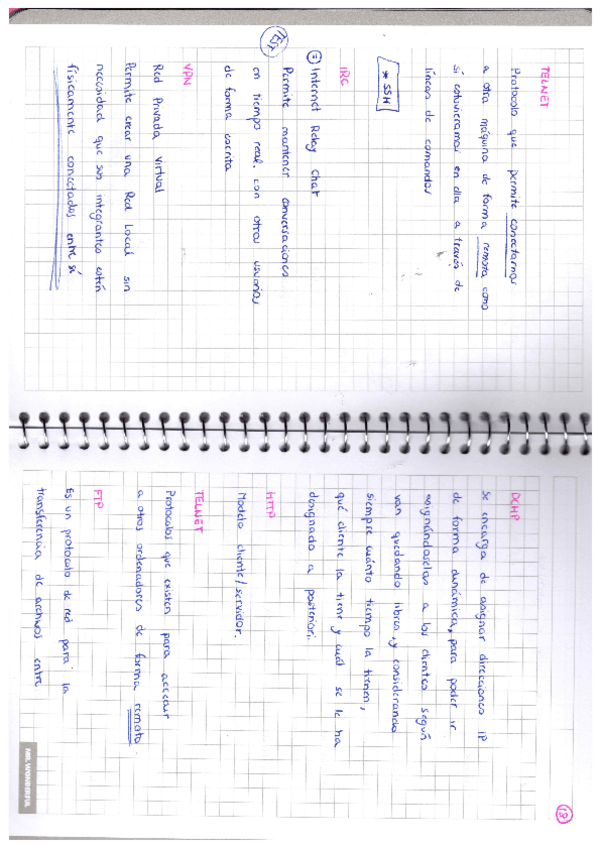 TELNET
Protocolo que permite conectarnos
a otra máquina de forma remota como
si estuvieramos en ella a través de
líneas de comandos
* SSH
IRC
TEST
Internet Relay Chat
Permite mantener conversaciones
en tiempo real con otros usuarios
de forma escrita
VPN
Red Privada Virtual
Permite crear una Red Local sin
necesidad que sus integrantes estén
físicamente conectados entre sí
18
DCHP
Se encarga de asignar direcciones IP
de forma dinámica, para poder ir
asignándoselas a los clientes según
van quedando libres, y considerando
siempre cuánto tiempo la tienen,
qué cliente la tiene y cuál se le ha
designado a posteriori.
HTTP
Modelo cliente/servidor.
TELNET
Protocolos que existen para acceder
a otros ordenadores de forma remota.
FTP
Es un protocolo de red para la
transferencia de archivos entre
MR. WONDERFUL